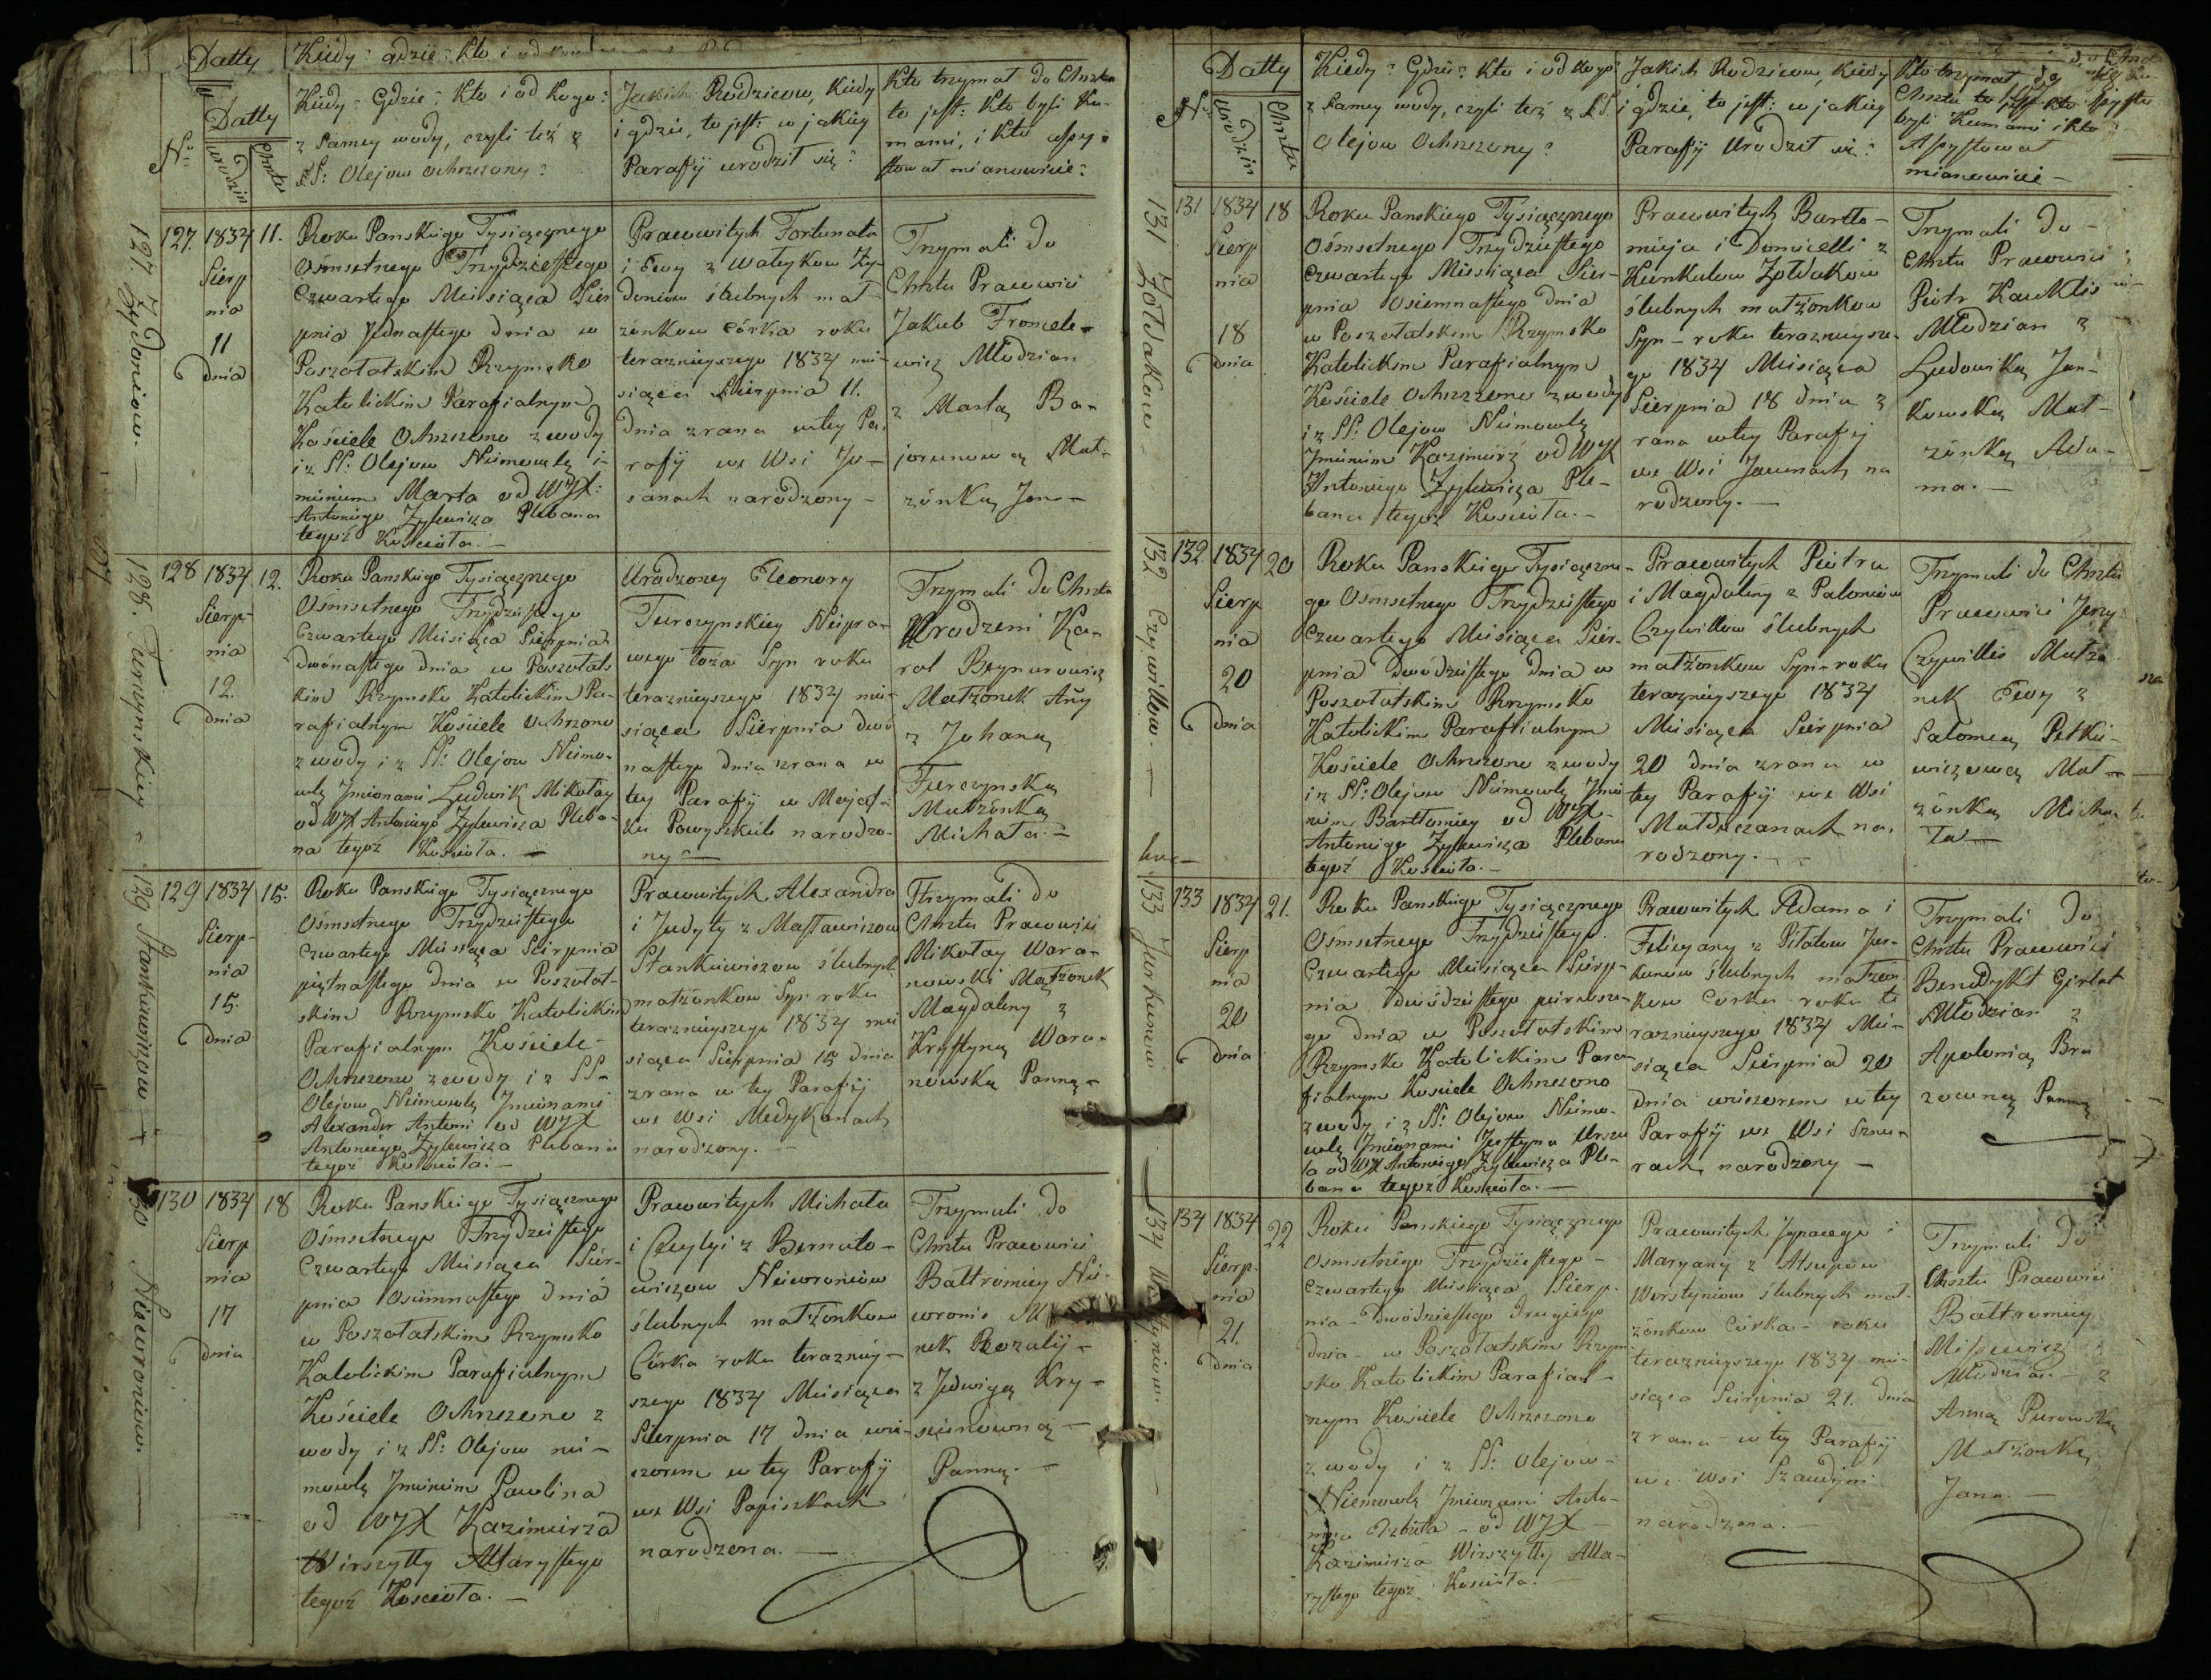 Datty
Kiedy? gdzie? kto i od
Datty
Urodzin
Chrztu
Nº
Kiedy? Gdzie? Kto i od kogo?
z Samey wody, czyli też z
SS: Olejow ochrzczony?
Jakich Rodzicow, kiedy
i gdzie, to jest: w jakiey
Parafij urodził się?
Kto trzymał do Chrztu
to jest: Kto byli Ku-
mami, i Kto assy-
stował mianowicie?
127. Żydoniow. —
127.
1834
Sierp
nia
11
dnia
11.
Roku Panskiego Tysiącznego
Ośmsetnego Trzydziestego
Czwartego Miesiąca Sier
pnia Jednastego dnia w
Poszołatskim Rzymsko
Katolickim Parafialnym
Kościele Ochrzczono z wody
i z SS: Olejow Niemowlę i-
mieniem Marta od WJX:
Antoniego Zylewicza Plebana
tegoż Kościoła. —
Prawowitych Fortunata
i Ewy z Wateykow Ży-
doniow ślubnych mał
żonkow córka roku
teraznieyszego 1834 mie-
siąca Sierpnia 11.
dnia zrana w tey Pa-
rafij we Wsi Ju-
sanach narodzony —
Trzymali do
Chrztu Prawowici
Jakub Froncele-
wicz Młodzian
z Martą Ba-
jorunową Mał-
żonką Jana —
128. Turczynskiey
128
1834
Sierp-
nia
12.
dnia
12.
Roku Panskiego Tysiącznego
Ośmsetnego Trzydziestego
Czwartego Miesiąca Sierpnia
dwónastego dnia w Poszołats
kim Rzymsko Katolickim Pa-
rafialnym Kościele Ochrzcono
z wody i z SS: Olejow Niemo-
wlę Jmionami Ludwik Mikołay
od WJX Antoniego Zylewicza Pleba-
na tegoż Kościoła. —
Urodzoney Eleonory
Turczynskiey Niepra-
wego łoża Syn roku
teraznieyszego 1834 mie-
siąca Sierpnia dwó
nastego dnia zrana w
tey Parafij w Majęt-
ku Powyszkule narodzo-
ny —
Trzymali do Chrztu
Urodzeni Ka-
rol Beynarowicz
Małżonek Anny
z Johaną
Turczynską
Małżonką
Michała. —
129 Stankiewiczow
129
1834
Sierp-
nia
15.
dnia
15.
Roku Panskiego Tysiącznego
Ośmsetnego Trzydziestego
Czwartego Miesiąca Sierpnia
piętnastego dnia w Poszołat-
skim Rzymsko Katolickim
Parafialnym Kościele-
Ochrzczono z wody i z SS-
Olejow Niemowlę Jmionami
Alexander Antoni od WJX
Antoniego Zylewicza Plebana
tegoż Kościoła. —
Prawowitych Alexandra
i Judyty z Mastawiczow
Stankiewiczow ślubnych
małżonkow Syn roku
teraznieyszego 1834 mie
siąca Sierpnia 15 dnia
zrana w tey Parafij
we Wsi Medykanach
narodzony. —
Trzymali do
Chrztu Prawowici
Mikołay Wara-
nowski Małżonek
Magdaleny z
Krystyną Wara-
nowską Panną —
130 Niewroniow. —
130
1834
Sierp
nia
17
dnia
18
Roku Panskiego Tysiącznego
Ośmsetnego Trzydziestego
Czwartego Miesiąca Sier-
pnia Osiemnastego dnia
w Poszołatskim Rzymsko
Katolickim Parafialnym
Kościele Ochrzczono z
wody i z SS: Olejow nie-
mowlę Jmieniem Paulina
od WJX Kazimierza
Wirszyłły Altarystego
tegoż Kościoła. —
Prawowitych Michała
i Cecylyi z Bernato-
wiczow Niewroniow
ślubnych małżonkow
Córka roku teraznie-
szego 1834 Miesiąca
Sierpnia 17 dnia wie-
czorem w tey Parafij
we Wsi Papiszkach
narodzona. —
Trzymali do
Chrztu Prawowici
Bałtromiey Nie-
wronis
nek Rozalij-
z Jedwigą Kry-
siunowną —
Panną. —
Datty
Nº
Urodzin
Chrztu
Kiedy? Gdzie? Kto i od kogo?
z Samey wody, czyli też z SS.
Olejow Ochrzczony?
Jakich Rodzicow, kiedy
i gdzie, to jest: w jakiey
Parafij Urodził się?
Kto trzymał do
Chrztu to jest kto
byli Kumami i kto
Asystował
mianowicie —
131 Żołdakow
131
1834
Sierp
nia
18
dnia
18
Roku Panskiego Tysiącznego
Ośmsetnego Trzydziestego
Czwartego Miesiąca Sier-
pnia Osiemnastego dnia
w Poszołatskim Rzymsko
Katolickim Parafialnym
Kościele Ochrzczono z wody
i z SS: Olejow Niemowlę
Jmieniem Kazimierz od WJX
Antoniego Zylewicza Ple-
bana tegoż Kościoła. —
Prawowitych Bartło-
mieja i Domicelli z
Kunkulow Żołdakow
ślubnych małżonkow
Syn — roku teraznieysze-
go 1834 Miesiąca
Sierpnia 18 dnia z
rana w tey Parafij
we Wsi Jawnach na
rodzony. —
Trzymali do —
Chrztu Prawowici
Piotr Kauklis
Młodzian z
Ludowiką Jan-
kowską Mał-
żonką Ada-
ma. —
132 Czywillow. —
132
1834
Sierp
nia
20
dnia
20
Roku Panskiego Tysiączne-
go Ośmsetnego Trzydziestego
Czwartego Miesiąca Sier-
pnia Dwódziestego dnia w
Poszołatskim Rzymsko
Katolickim Parafialnym
Kościele Ochrzczono z wody
i z SS: Olejow Niemowlę Jmie
niem Bartłomiey od WJX-
Antoniego Zylewicza Plebana
tegoż Kościoła. —
Prawowitych Piotra
i Magdaleny z Paloniow
Czywillow ślubnych
małżonkow Syn — roku
teraznieyszego 1834
Miesiąca Sierpnia
20 dnia zrana w
tey Parafij we Wsi
Matduczanach na-
rodzony. —
Trzymali do Chrztu
Prawowici Jerzy
Czywillis Małżo-
nek Ewy z
Salomeą Petkie-
wiczową Mał-
żonką Micha-
ła —
133 Jurkuniow
133
1834
Sierp
nia
20
dnia
21.
Roku Panskiego Tysiącznego
Ośmsetnego Trzydziestego
Czwartego Miesiąca Sierp-
nia dwódziestego pierwsze-
go dnia w Poszołatskim
Rzymsko Katolickim Para-
fialnym Kościele Ochrzczono
z wody i z SS: Olejow Niemo-
wlę Jmionami Justyna Urszu
la od WJX Antoniego Zylewicza Ple-
bana tegoż Kościoła. —
Prawowitych Adama i
Felicyany z Pilatow Jur-
kuniow ślubnych małżon
kow Corka roku te
raznieyszego 1834 Mie-
siąca Sierpnia 20
dnia wieczorem w tey
Parafij we Wsi Sznu-
rach narodzony —
Trzymali do
Chrztu Prawowici
Benedykt Girłat
Młodzian z
Apolonią Bra
zowną Panną
134
134
1834
Sierp-
nia
21.
dnia
22
Roku Panskiego Tysiącznego
Osmsetnego Trzydziestego —
Czwartego Miesiąca Sierp-
nia — dwódziestego drugiego
dnia — w Poszołatskim Rzym-
sko Katolickim Parafial-
nym Kościele Ochrzczono
z wody i z SS: Olejów-
Niemowlę Jmionami Anto-
nina Izbieta — od WJX —
Kazimierza Wirszyłły Alta-
rystego tegoż Kościoła. —
Prawowitych Jgnacego i
Maryany z Atsupow
Worstyniow ślubnych mał-
żonkow Córka — roku
teraznieyszego 1834 mie-
siąca Sierpnia 21. dnia
zrana — w tey Parafij
we Wsi Szawdyni
narodzona. —
Trzymali do
Chrztu Prawowici
Bałtromiey
Misiewicz
Młodzian — z
Anną Purowską
Małżonką
Jana. —